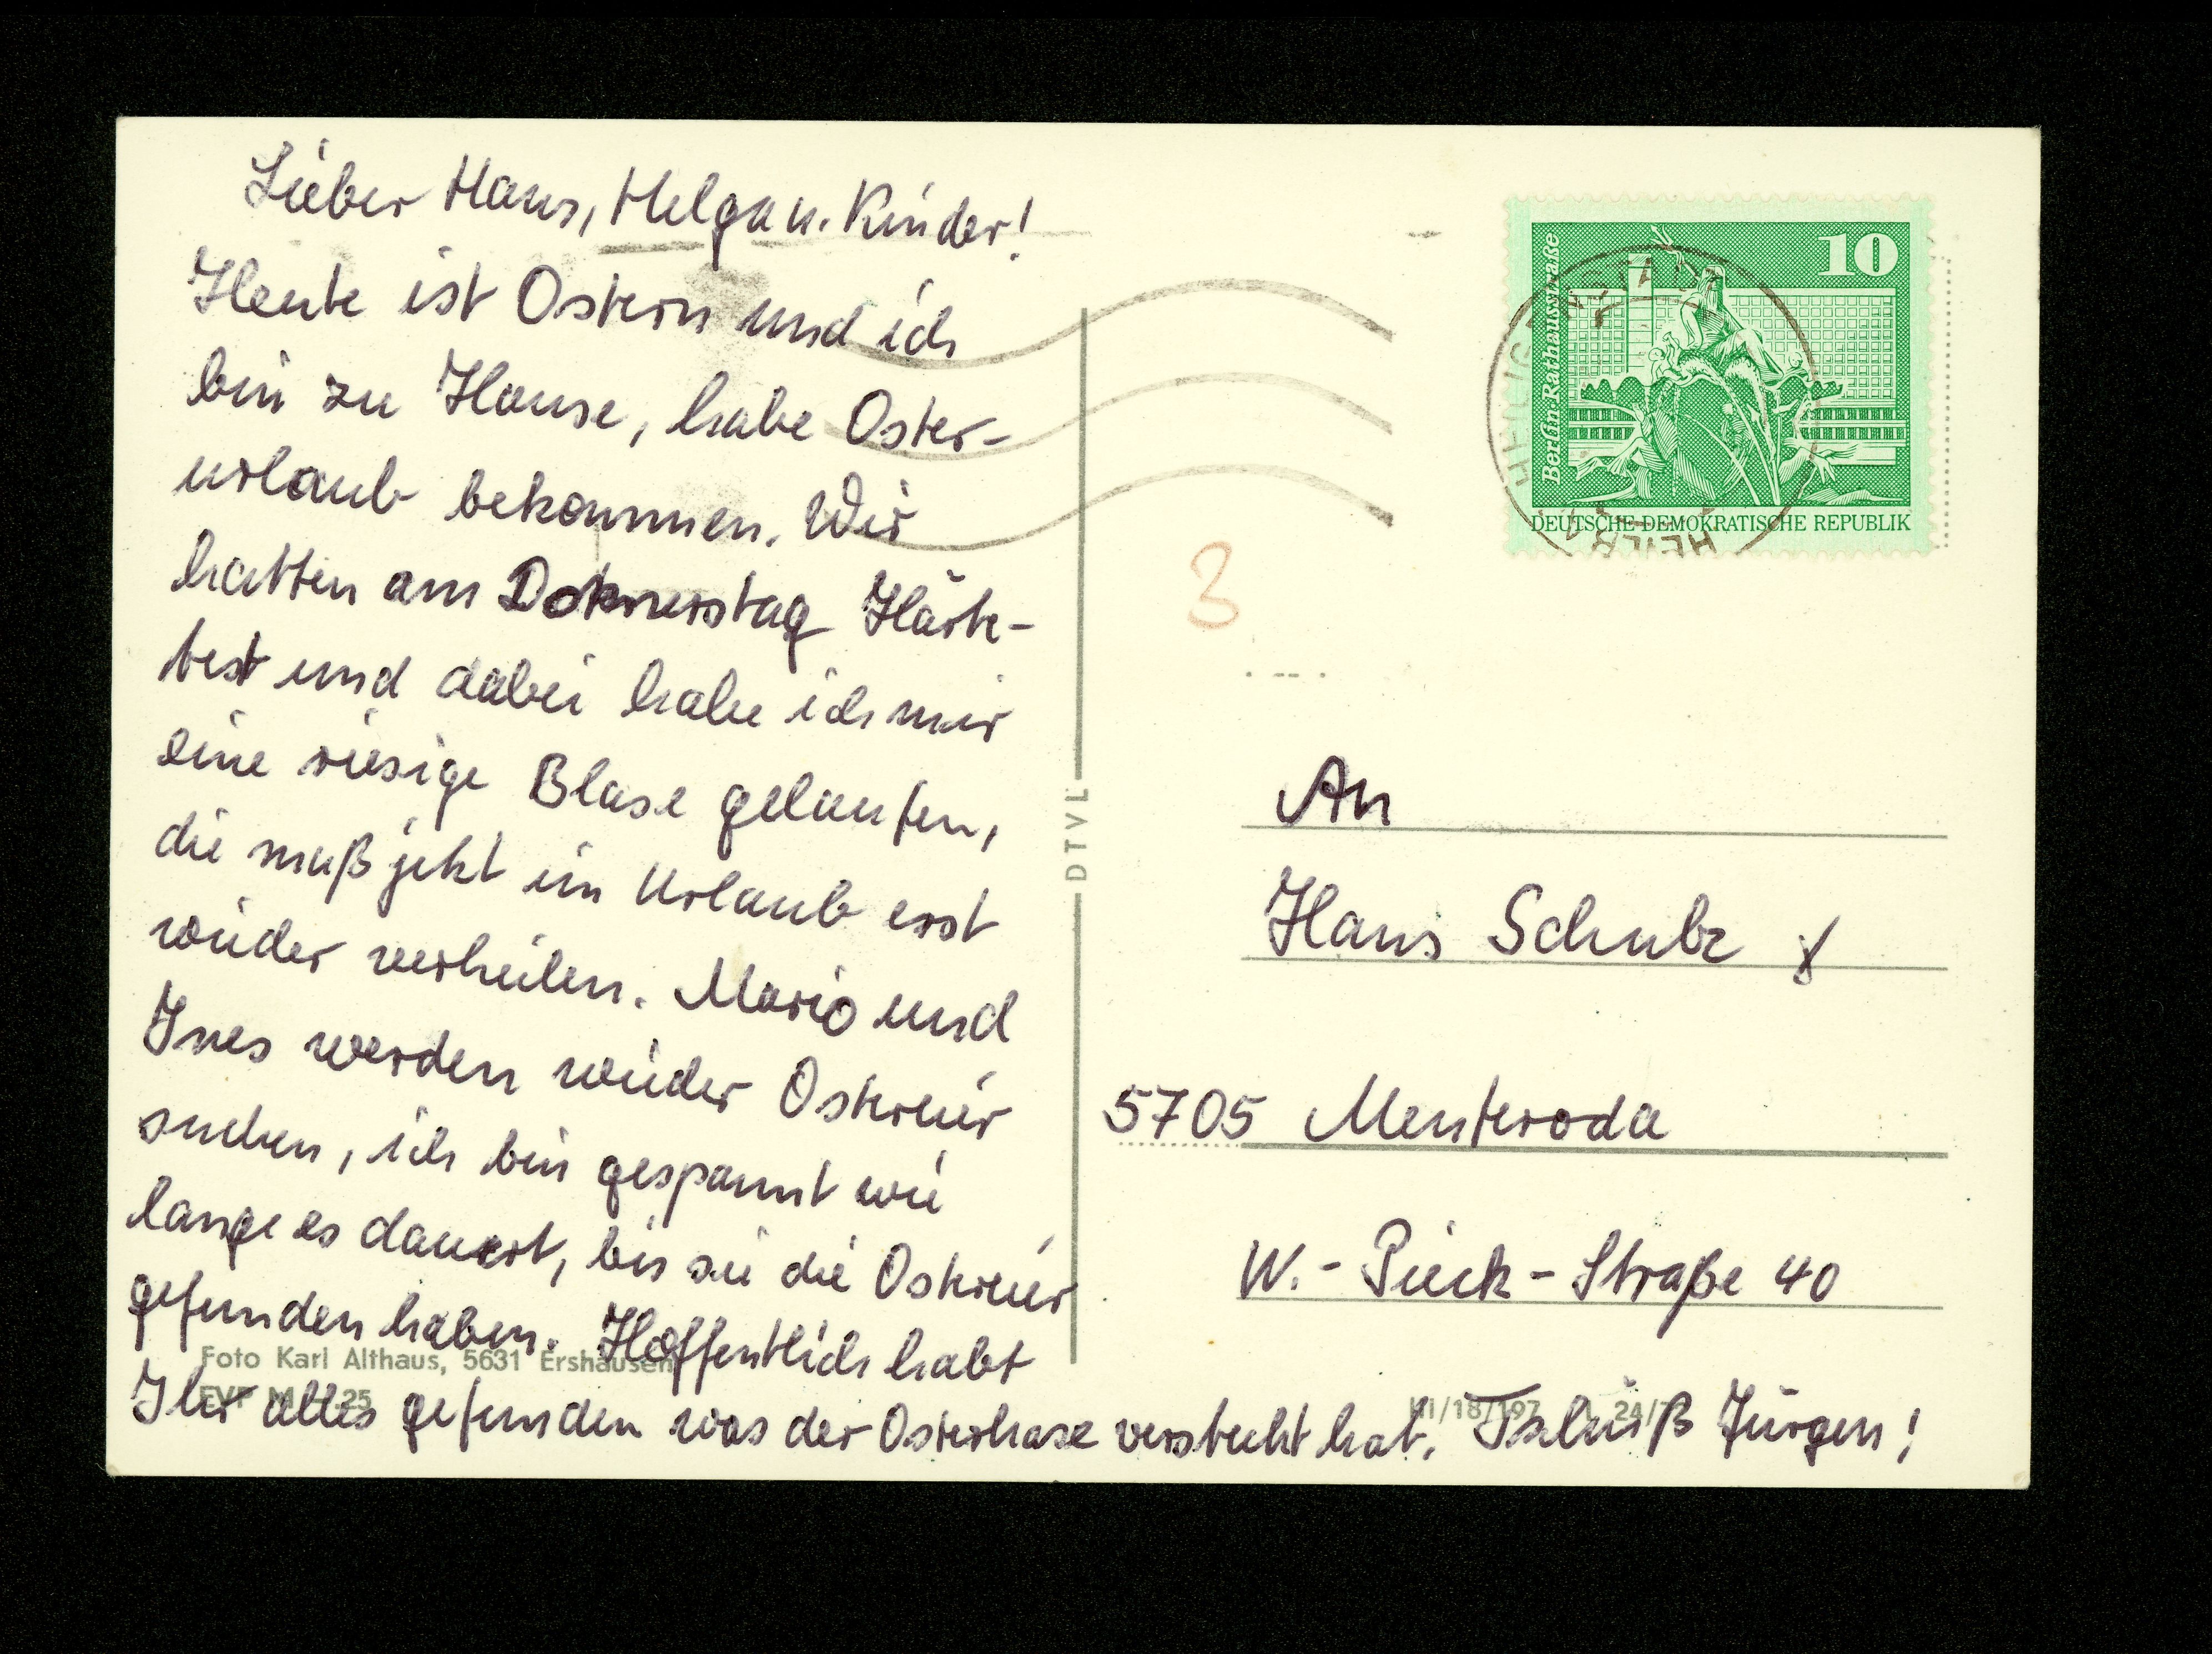 Lieber Hans, Helga u. Kinder!
Heute ist Ostern und ich
bin zu Hause, habe Oster-
urlaub bekommen. Wir
hatten am Donnerstag Härte-
test und dabei habe ich mir
eine riesige Blase gelaufen,
die muß jetzt im Urlaub erst
wieder verheilen. Mario und
Ines werden wieder Ostereier
suchen, ich bin gespannt wie
lange es dauert, bis sie die Ostereier
gefunden haben. Hoffentlich habt
Ihr alles gefunden was der Osterhase versteckt hat. Tschüß Jürgen!
Foto Karl Althaus, 5631 Ershausen
25
DTVL
10
Berlin Rathausstraße
DEUTSCHE DEMOKRATISCHE REPUBLIK
HEILIGENSTADT
3
An
Hans Schulz
5705 Menteroda
W.-Pieck-Straße 40